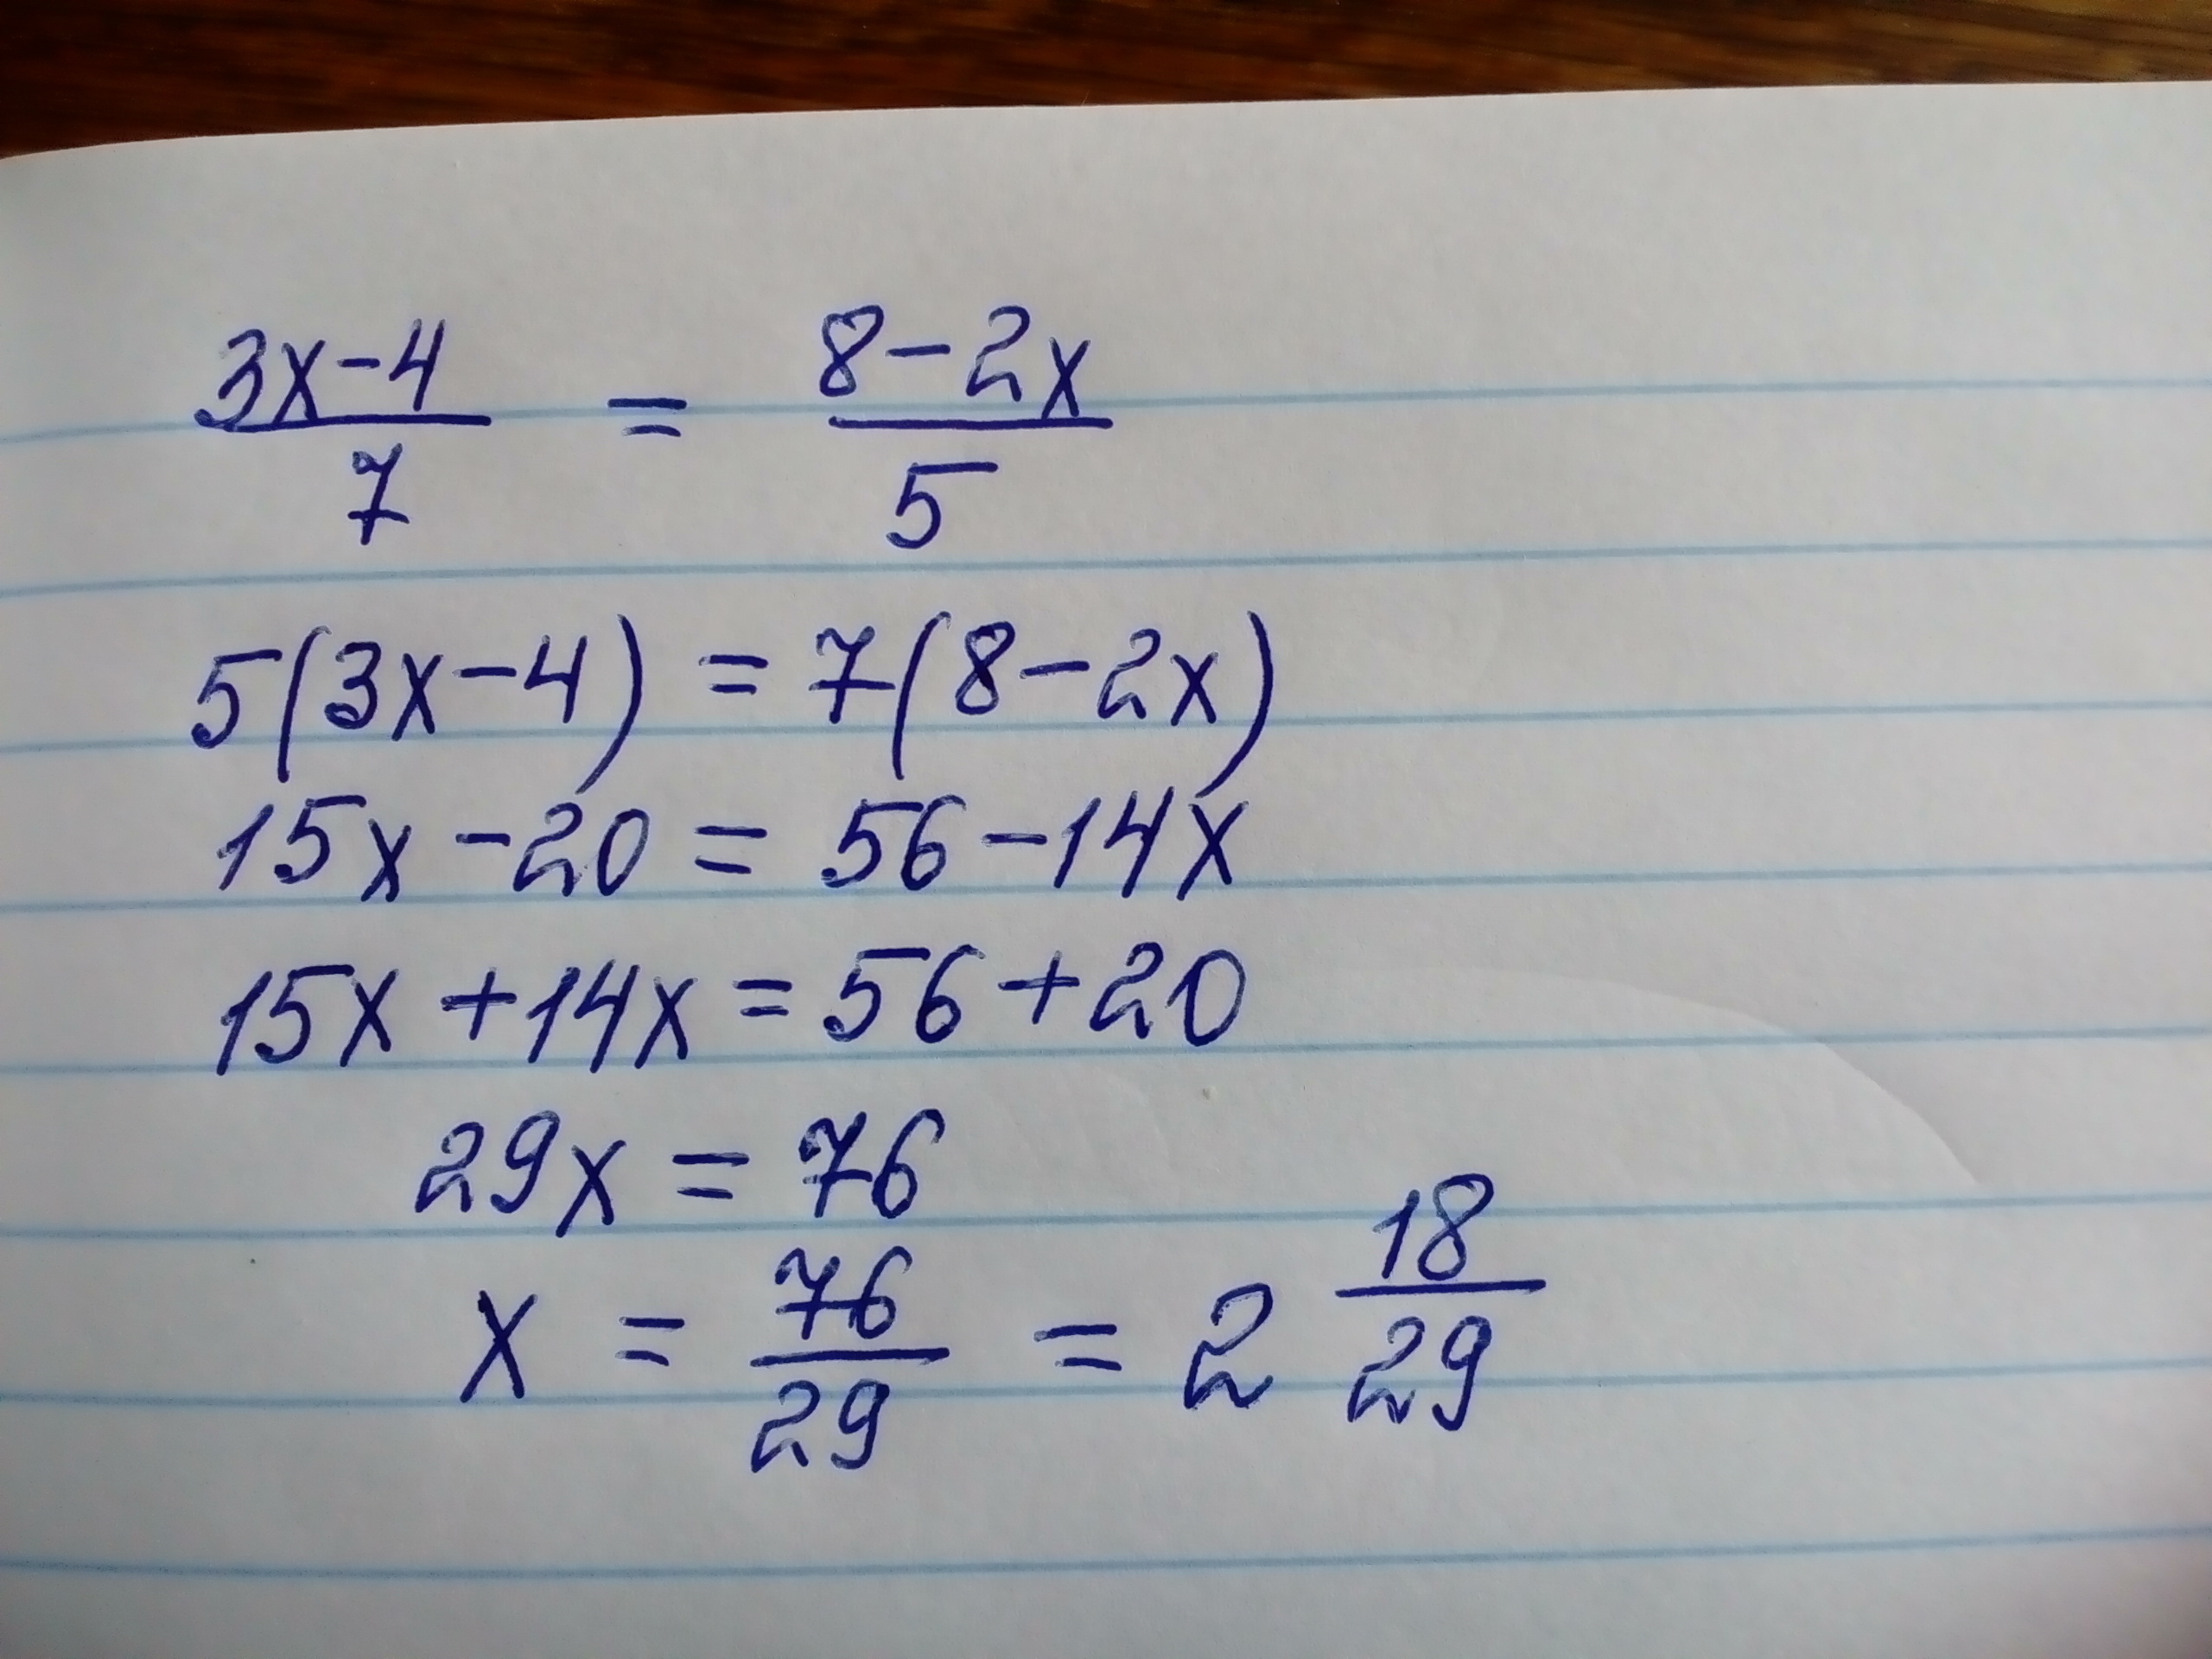 (3x-4)/7 = (8-2x)/5
5(3x-4) = 7(8-2x)
15x-20 = 56-14x
15x+14x = 56+20
29x = 76
x = 76/29 = 2 18/29